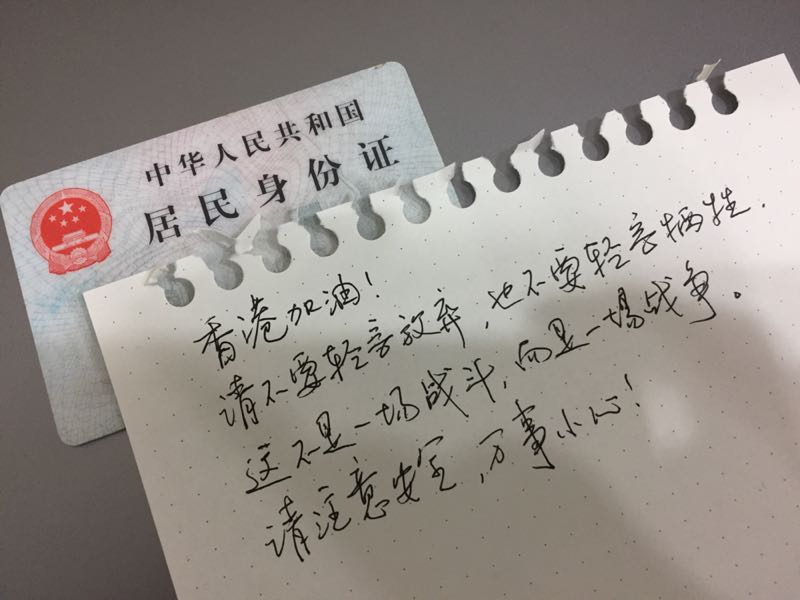 中华人民共和国
居民身份证
香港加油！
请不要轻言放弃，也不要轻言牺牲.
这不是一场战斗，而是一場战争。
请注意安全，万事小心！